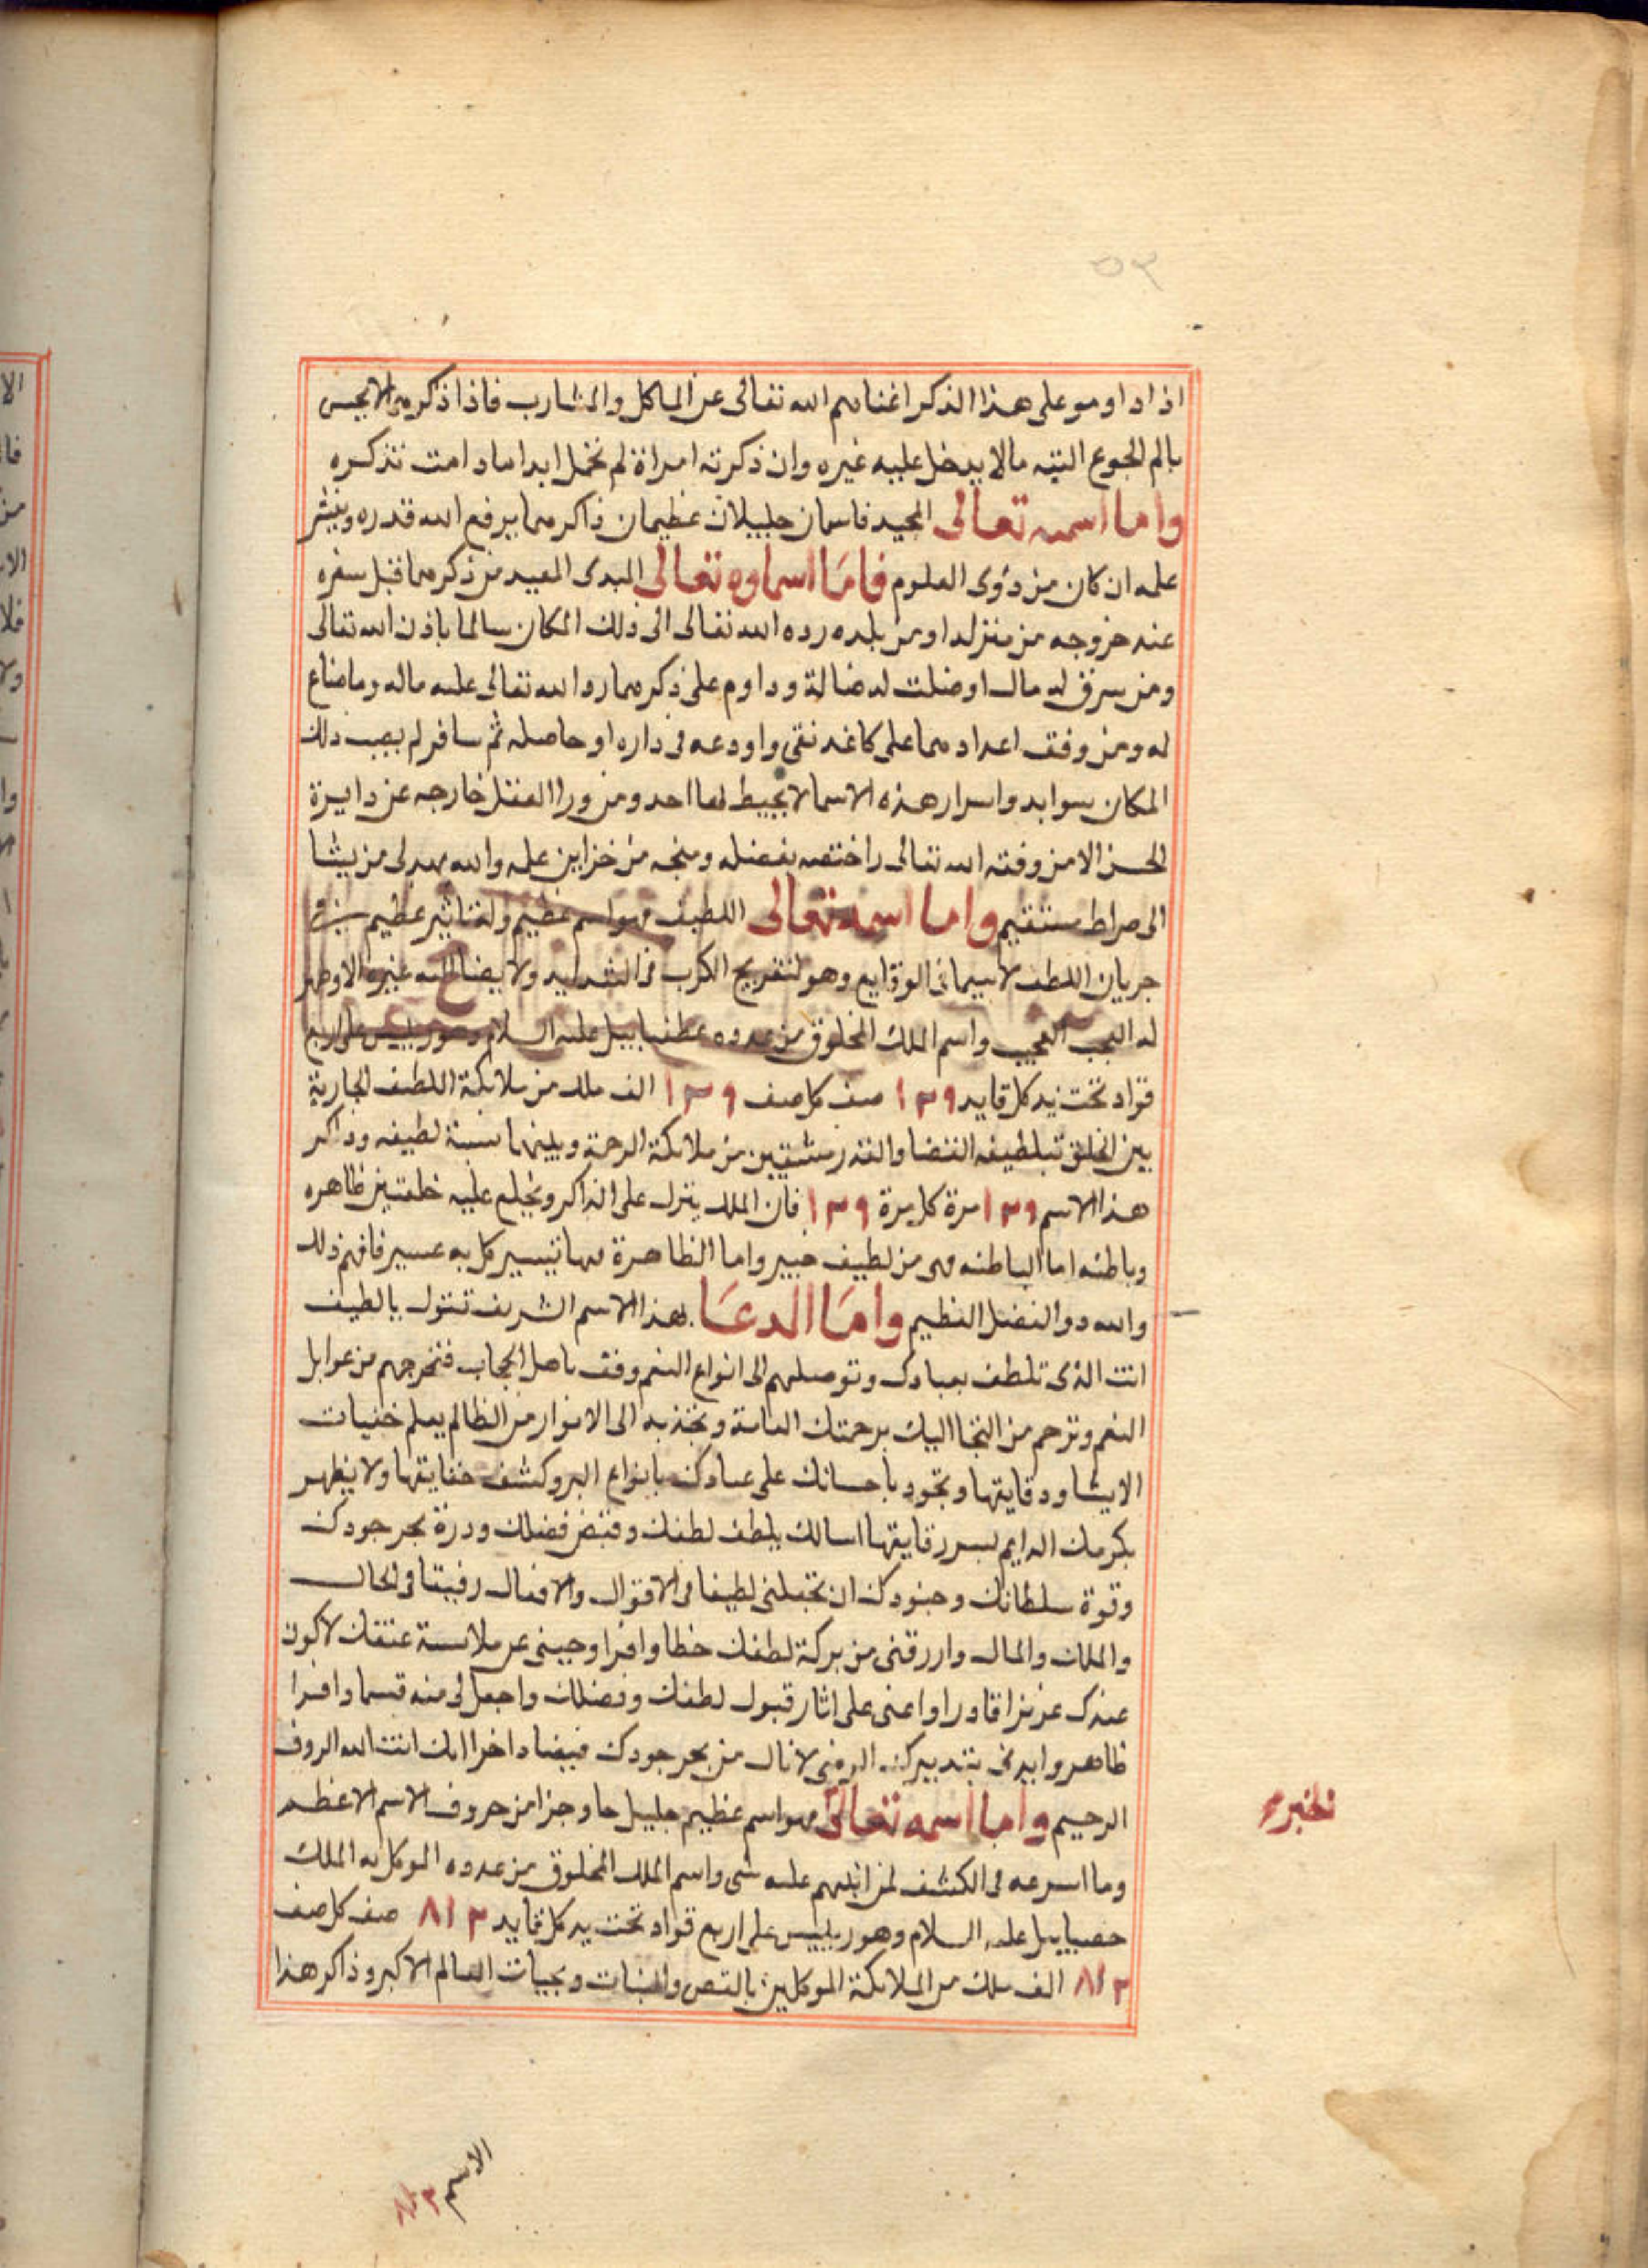 ٥٣
اذا داوموا على هذا الذكر اغناهم الله تعالى عن الماكل والمشارب فاذا ذكره من لا يحس
بالم الجوع البتة مالا يدخل عليه غيره وان ذكرته امراة لم تحمل ابدا ما دامت تذكره
واما اسمه تعالى المجيد فاسمان جليلان عظيمان ذاكرهما يرفع الله قدره وينشر
علمه ان كان من ذوى العلوم فاما اسماوه تعالى المبدى المعيد من ذكرهما قبل سفره
عند خروجه من منزله او من بلده رده الله تعالى الى ذلك المكان سالما باذن الله تعالى
ومن سرق له مال او ضلت له ضالة وداوم على ذكرهما رد الله تعالى عليه ماله وما ضاع
له ومن وفق اعدادهما على كاغد نقى واودعه فى داره او حاصله ثم سافر لم يصب ذلك
المكان سوا ابد واسرار هذه الاسما لا يحيط بها احد ومن ورا العقل خارجه عن دايرة
الحس الا من وفقه الله تعالى واختصه بفضله ومنحه من خزاين علمه والله يهدى من يشا
الى صراط مستقيم واما اسمه تعالى اللطيف فهو اسم عظيم وله تاثير عظيم فى
جريان اللطف لا سيما فى الوقايع وهو لتفريج الكرب فى الشدايد ولا يضاف اليه غيره الا وظهر
له العجب العجيب واسم الملك المخلوق من عدده عطفياييل عليه السلام وهو رييس على اربع
قواد تحت يد كل قايد ١٣٩ صف كل صف ١٣٩ الف ملك من ملائكة اللطف الجارية
بين الخلق بلطيفه القضا والقدر مشتقين من ملائكة الرحمة وبينهما نسبة لطيفه وذاكر
هذا الاسم ١٣٩ مرة كل مرة ١٣٩ فان الملك ينزل على الذاكر ويخلع عليه خلعتين ظاهره
وباطنه اما الباطنه فهى من لطيف خبير واما الظاهرة فبها تيسير كل به عسير فافهم ذلك
والله ذو الفضل العظيم واما الدعا بهذا الاسم الشريف تقول يا لطيف
انت الذى تلطف بعبادك وتوصلهم الى انواع النعم وفق باهل الحجاب فتخرجهم من عوابل
النعم وترحم من التجا اليك برحمتك العامة وتجذبه الى الانوار من الظالم يعلم خفيات
الايشا ودقايقها وتجود باحسانك على عبادك بانواع البر وكشف حقايقها ولا يظهر
بكرمك الدايم بسر رقايقها اسالك بلطف لطفك وفيض فضلك ودرة بحر جودك
وقوة سلطانك وجنودك ان تجعلنى لطيفا فى الاقوال والافعال رفيقا فى الحال
والملك والمال وارزقنى من بركة لطفك حظا وافرا وجينى عن ملابسة عنفك لاكون
عندك عزيزا قادرا واعنى على اثار قبول لطفك وفضلك واجعل لى منه قسما وافرا
ظاهر وايدنى بتدبيرك الرضى لانال من بحر جودك فيضا داخرا انك انت الله الروف
الرحيم واما اسمه تعالى فهو اسم عظيم جليل حاو جزا من حروف الاسم الاعظم
الخبير
وما اسرعه فى الكشف لمن انبهم عليه شى واسم الملك المخلوق من عدده الموكل به الملك
حصياييل عليه السلام وهو رييس على اربع قواد تحت يد كل قايد ٨١٢ صف كل صف
٨١٢ الف ملك من الملائكة الموكلين بالقص والنبات وبحيات العالم الاكبر وذاكر هذا
الاسم ٨١٢